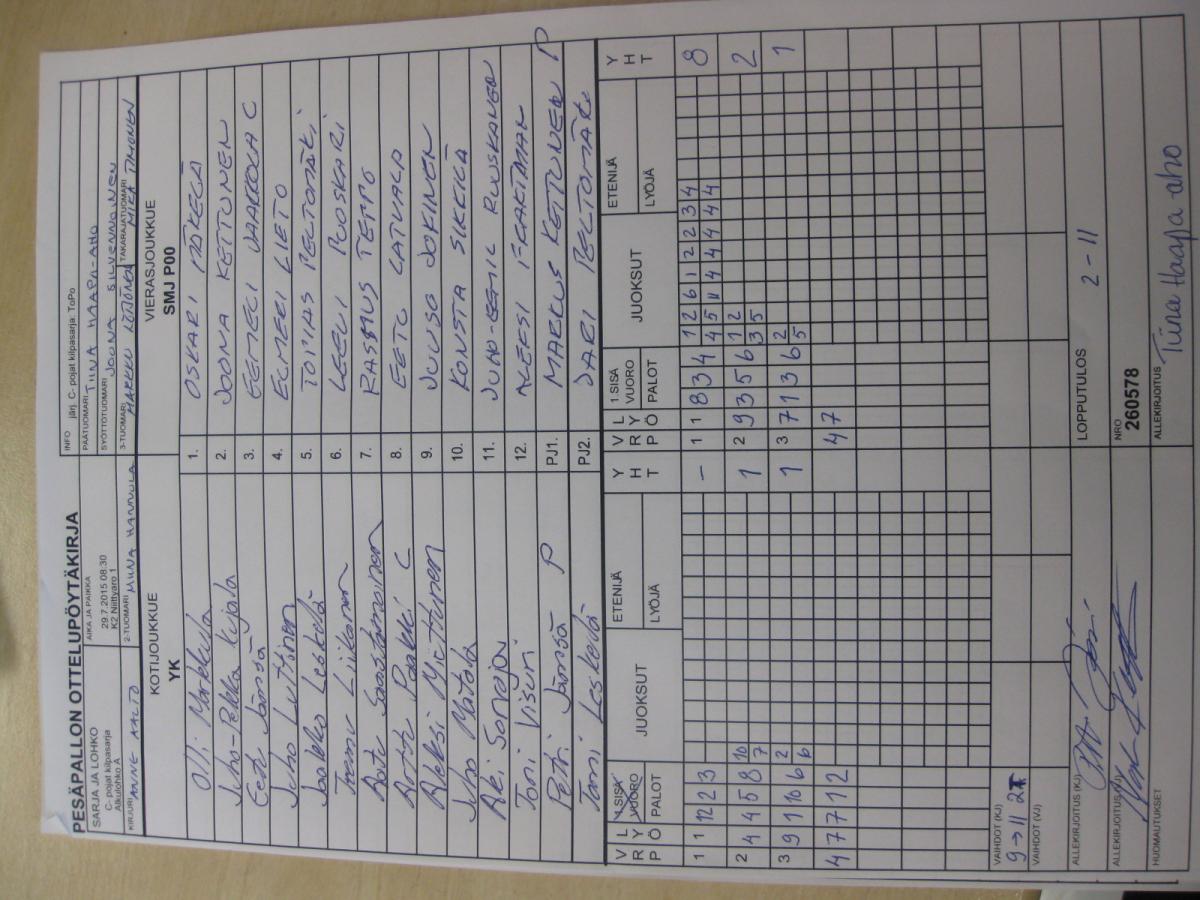 PESÄPALLON OTTELUPÖYTÄKIRJA
SARJA JA LOHKO
C- pojat kilpasarja
Alkulohko A
AIKA JA PAIKKA
29.7.2015 08:30
K2 Niittyaro 1
INFO järj. C- pojat kilpasarja: ToPo
PÄÄTUOMARI TIINA HAAPA-AHO
SYÖTTÖTUOMARI JOONA SILVENNOINEN
KIRJURI ANNE AALTO
2-TUOMARI MIINA HANNULA
3-TUOMARI MARKKU
TAKARAJATUOMARI MIKA TIMONEN
KOTIJOUKKUE
YK
VIERASJOUKKUE
SMJ P00
Olli Markkula 1. OSKARI MÄKELÄ
Juho-Pekka Kujala 2. JOONA KETTUNEN
Eetu Jämsä 3. EEMELI JAAKKOLA C
Juho Luttinen 4. ELMERI LIETO
Jaakko Leskelä 5. TOMAS PELTOMÄKI
Teemu Liikanen 6. LEEVI PUOSKARI
Aatu Saastamoinen 7. RASMUS TEPPO
Arttu Pakki C 8. EETU LATVALA
Aleksi Miettinen 9. JUUSO JOKINEN
Juho Matala 10. KONSTA SIKKILÄ
Aki Sorvajou 11. JUHO-EEMIL RUUSKANEN
Toni Visuri 12. ALEKSI
Petri Jämsä P PJ1. MARKUS KETTUNEN P
Tomi Leskelä PJ2. JARI PELTOMÄKI
V R P L Y Ö 1.SISÄ VUORO PALOT JUOKSUT ETENIJÄ LYÖJÄ Y H T V R P L Y Ö 1.SISÄ VUORO PALOT JUOKSUT ETENIJÄ LYÖJÄ Y H T
1 1 12 2 3 - 1 1 8 3 4 1 2 6 1 2 2 3 4 8
4 5 11 4 4 4 4 4
2 4 4 5 8 10 1 2 9 3 5 6 1 2 2
7 3 5
3 9 11 6 6 2 1 3 7 1 3 6 2 1
6 5
4 7 7 1 2 4 7
VAIHDOT (KJ)
9→11 2
VAIHDOT (VJ)
ALLEKIRJOITUS (KJ)
LOPPUTULOS 2-11
ALLEKIRJOITUS (VJ)
NRO
260578
HUOMAUTUKSET
ALLEKIRJOITUS Tiina Haapa-aho